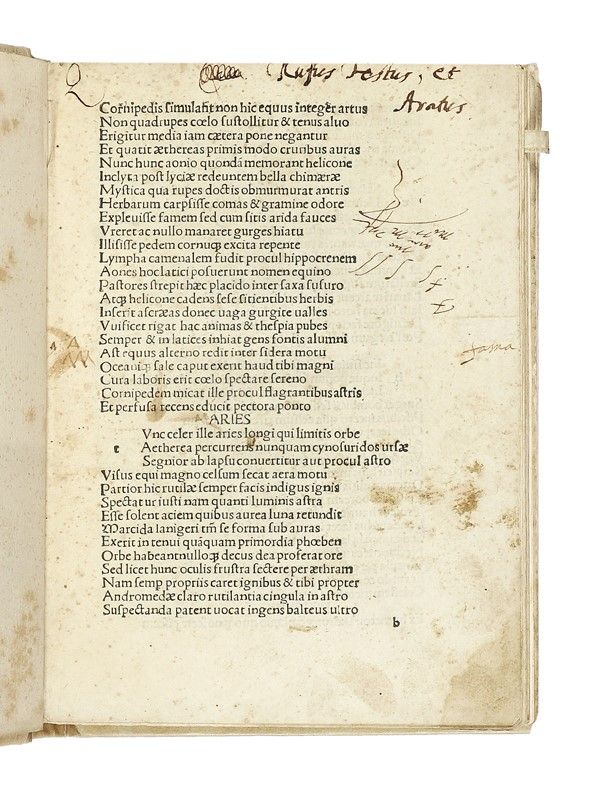 Rufus Festus, et
Aratus.
Cornipedis simulasit non hic equus integer artus
Non quadrupes cœlo sustollitur & tenus aluo
Erigitur media iam cætera pone negantur
Et quatit æthereas primis modo cruribus auras
Nunc hunc aonio quondā memorant helicone
Inclyta post lyciæ redeuntem bella chimæræ
Mystica qua rupes doctis obmurmurat antris
Herbarum carpsisse comas & gramine odore
Expleuisse famem sed cum sitis arida fauces
Vreret ac nullo manaret gurges hiatu
Illisisse pedem cornuqꝫ excita repente
Lympha camenalem fudit procul hippocrenem
Aones hoc latici posuerunt nomen equino
Pastores strepit hæc placido inter saxa susuro
Atqꝫ helicone cadens sese sitientibus herbis
Inserit ascræas donec uaga gurgite ualles
Viuificet rigat hac animas & thespia pubes
Semper & in latices inhiat gens fontis alumni
Ast equus alterno redit inter sidera motu
Oceaniqꝫ sale caput exerit haud tibi magni
Cura laboris erit cœlo spectare sereno
Cornipedem micat ille procul flagrantibus astris
Et perfusa recens educit pectora ponto
ARIES
Vnc celer ille aries longi qui limitis orbe
t Aetherea percurrens nunquam cynosuridos ursæ
Segnior ab lapsu conuertitur aut procul astro
Visus equi magno celsum secat aera motu
Partior hic rutilæ semper facis indigus ignis
Spectatur iusti nam quanti luminis astra
Esse solent aciem quibus aurea luna retundit
Marcida lanigeri tm̄ se forma sub auras
Exerit in tenui quāquam primordia phœben
Orbe habeant nulloqꝫ decus dea proferat ore
Sed licet hunc oculis frustra sectere per æthram
Nam semp propriis caret ignibus & tibi propter
Andromedæ claro rutilantia cingula in astro
Suspectanda patent uocat ingens balteus ultro
b